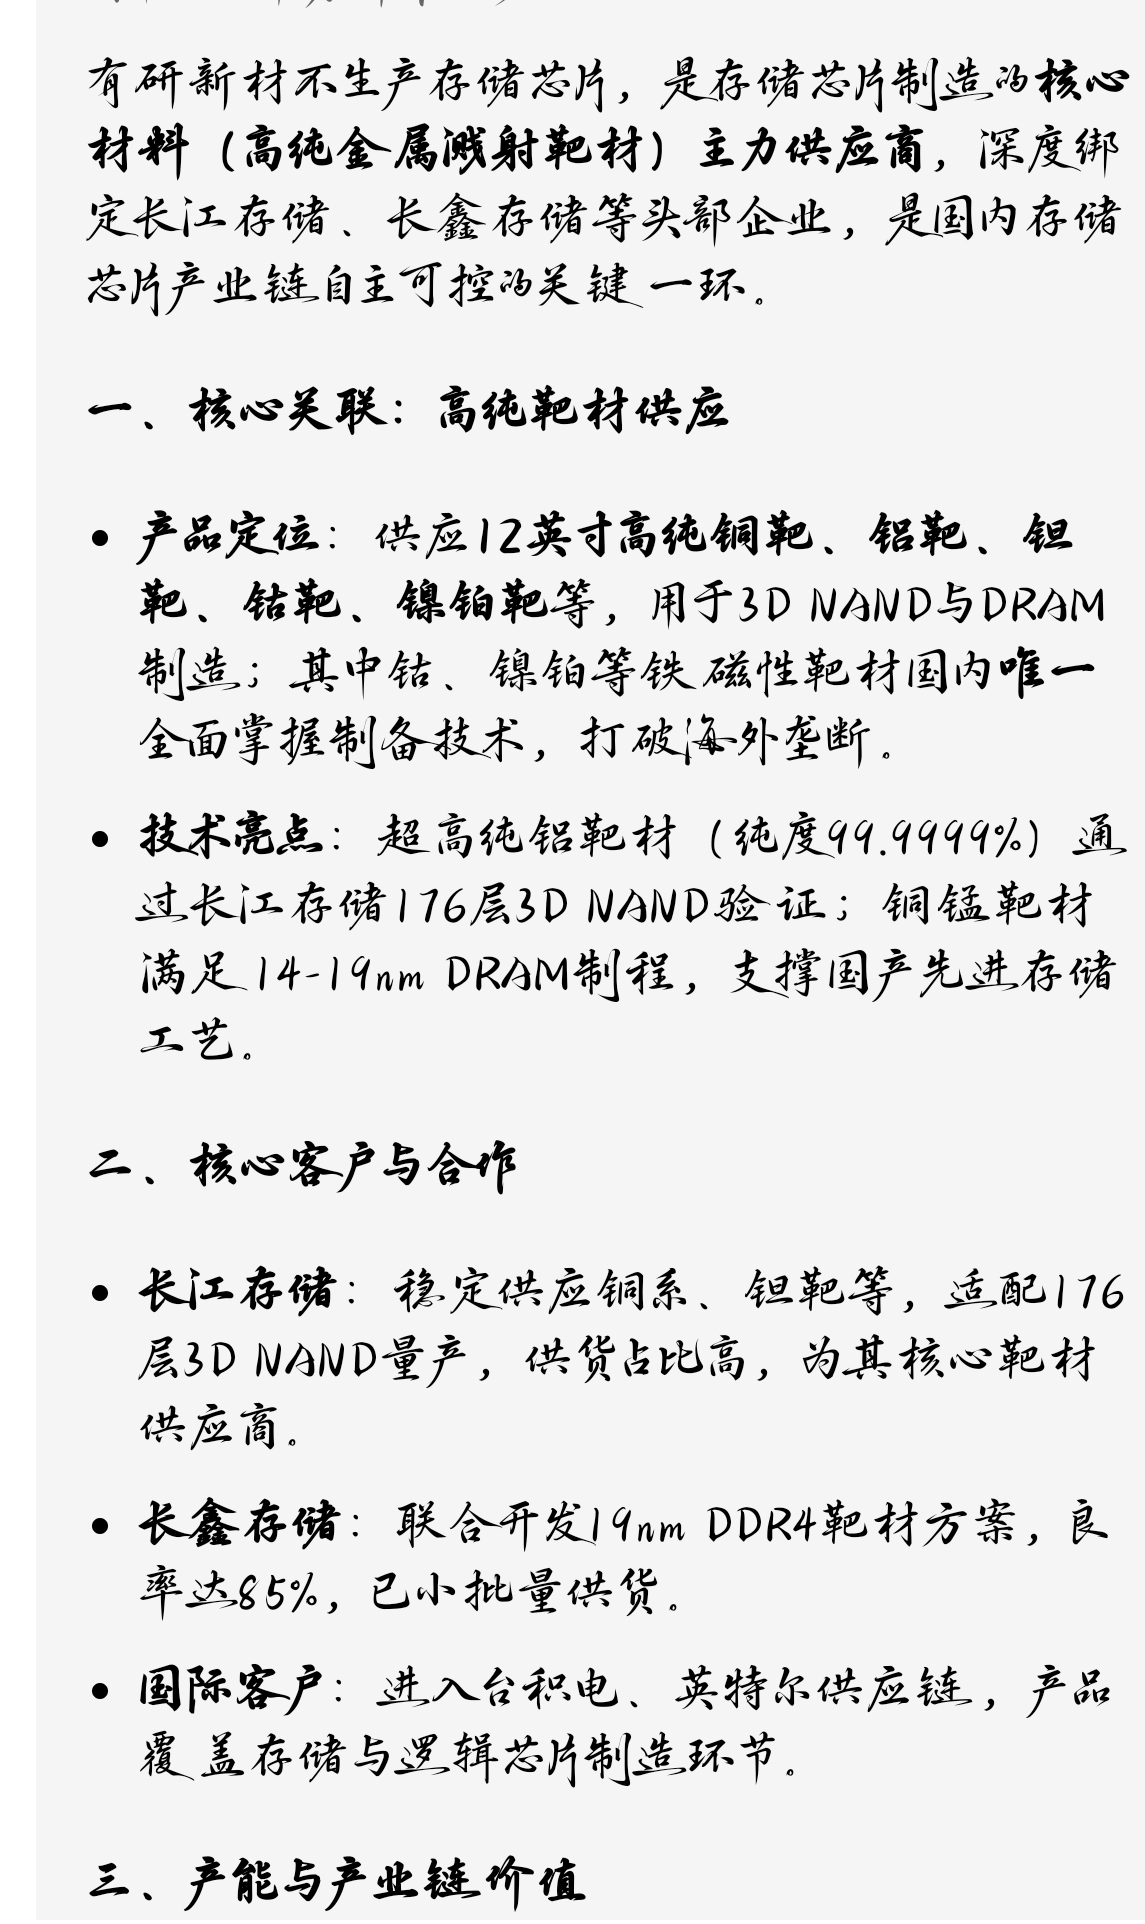 有研新材不生产存储芯片，是存储芯片制造的核心
材料（高纯金属溅射靶材）主力供应商，深度绑
定长江存储、长鑫存储等头部企业，是国内存储
芯片产业链自主可控的关键一环。
一、核心关联：高纯靶材供应
• 产品定位：供应12英寸高纯铜靶、铝靶、钽
靶、钴靶、镍铂靶等，用于3D NAND与DRAM
制造；其中钴、镍铂等铁磁性靶材国内唯一
全面掌握制备技术，打破海外垄断。
• 技术亮点：超高纯铝靶材（纯度99.9999%）通
过长江存储176层3D NAND验证；铜锰靶材
满足14-19nm DRAM制程，支撑国产先进存储
工艺。
二、核心客户与合作
• 长江存储：稳定供应铜系、钽靶等，适配176
层3D NAND量产，供货占比高，为其核心靶材
供应商。
• 长鑫存储：联合开发19nm DDR4靶材方案，良
率达85%，已小批量供货。
• 国际客户：进入台积电、英特尔供应链，产品
覆盖存储与逻辑芯片制造环节。
三、产能与产业链价值